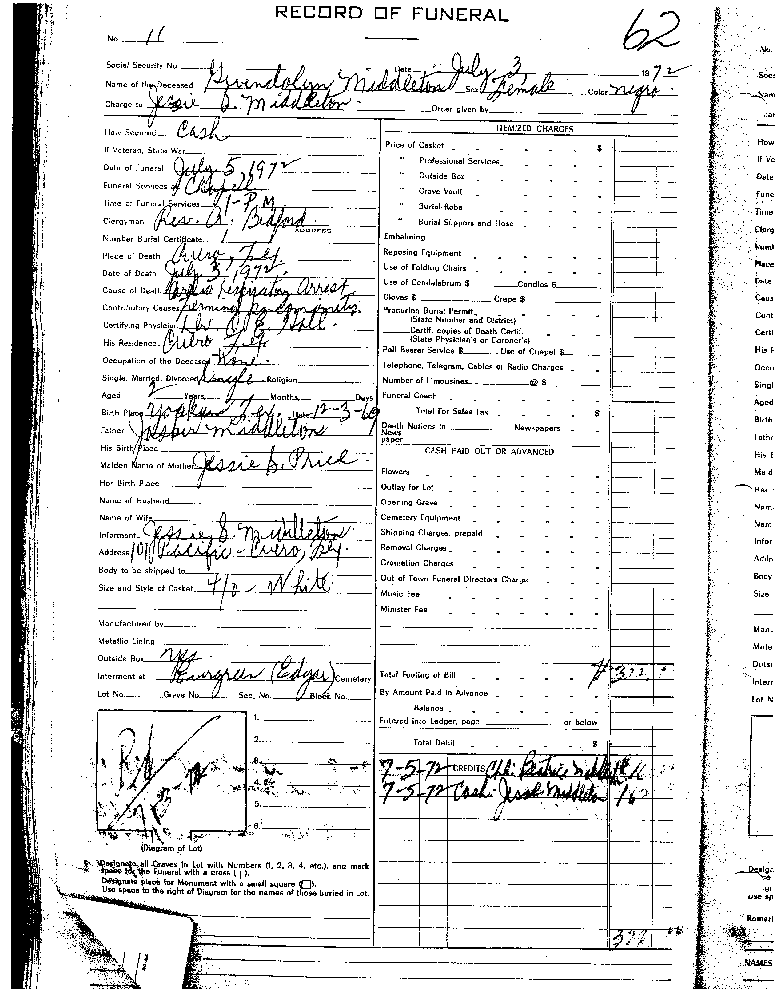 RECORD OF FUNERAL
62
No. 11
Social Security No. Date July 3, 1972
Name of the Deceased Gwendolyn Middleton Sex Female Color Negro
Charge to Jessie S. Middleton Order given by
How Secured Cash
If Veteran, State War
Date of Funeral July 5, 1972
Funeral Services at Chapel
Time of Funeral Services 1-P.M.
Clergyman Rev. A. Bedford
ADDRESS
Number Burial Certificate
Place of Death Cuero, Tex
Date of Death July 3, 1972
Cause of Death Cardio Respiratory Arrest
Contributory Causes
Certifying Physician Dr. Hall
His Residence Cuero Tex
Occupation of the Deceased None
Single, Married, Divorced Single Religion
Aged 2 Years 7 Months Days
Birth Place Yoakum Tex. Date 12-3-69
Father Middleton
His Birth Place
Maiden Name of Mother Jessie S. Price
Her Birth Place
Name of Husband
Name of Wife
Informant Jessie S. Middleton
Address Pacific - Cuero, Tex.
Body to be shipped to
Size and Style of Casket 4/0 - White
Manufactured by
Metallic Lining
Outside Box yes
Interment at Evergreen (Edgar) Cemetery
Lot No. Grave No. Sec. No. Block No.
1.
2.
3.
4.
5.
6.
(Diagram of Lot)
Designate all Graves in Lot with Numbers (1, 2, 3, 4, etc.), and mark
space for the Funeral with a cross ( ).
Designate place for Monument with a small square (☐).
Use space to the right of Diagram for the names of those buried in Lot.
ITEMIZED CHARGES
Price of Casket $
" Professional Services
" Outside Box
" Grave Vault
" Burial Robe
" Burial Slippers and Hose
Embalming
Reposing Equipment
Use of Folding Chairs
Use of Candelabrum $ Candles $
Gloves $ Crape $
Procuring Burial Permit
(State Number and District)
Certif. copies of Death Certif.
(State Physician's or Coroner's)
Pall Bearer Service $ Use of Chapel $
Telephone, Telegram, Cables or Radio Charges
Number of Limousines @ $
Funeral Coach
Total For Sales Tax $
Death Notices in Newspapers
News
paper
CASH PAID OUT OR ADVANCED
Flowers
Outlay for Lot
Opening Grave
Cemetery Equipment
Shipping Charges, prepaid
Removal Charges
Cremation Charges
Out of Town Funeral Directors Charge
Music Fee
Minister Fee
Total Footing of Bill
By Amount Paid in Advance
Balance
Entered into Ledger, page or below
Total Debit $
7-5-72 CREDITS
7-5-72 Cash Middleton